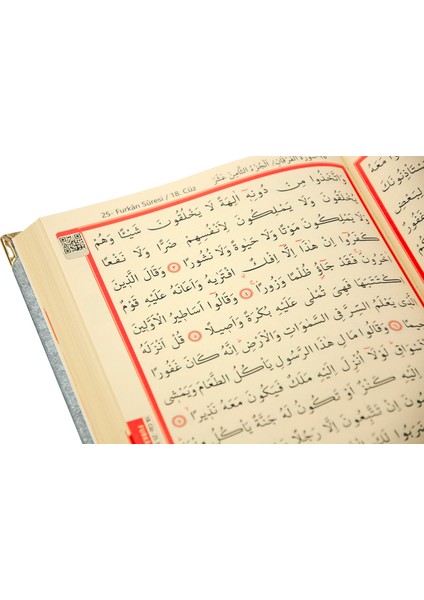 25- Furkân Sûresi / 18. Cüz
سُورَةُ الْفُرْقَانِ / اَلْجُزْءُ الثَّامِنُ عَشَرَ
وَاتَّخَذُوا مِنْ دُونِهٖٓ اٰلِهَةً لَا يَخْلُقُونَ شَيْـًٔا وَهُمْ
يُخْلَقُونَ وَلَا يَمْلِكُونَ لِاَنْفُسِهِمْ ضَرًّا وَلَا نَفْعًا
وَلَا يَمْلِكُونَ مَوْتًا وَلَا حَيٰوةً وَلَا نُشُورًا ٣ وَقَالَ الَّذٖينَ
كَفَرُٓوا اِنْ هٰذَٓا اِلَّٓا اِفْكٌ افْتَرٰيهُ وَاَعَانَهُ عَلَيْهِ قَوْمٌ
اٰخَرُونَ فَقَدْ جَٓاؤُ ظُلْمًا وَزُورًا ٤ وَقَالُٓوا اَسَاطٖيرُ الْاَوَّلٖينَ
اكْتَتَبَهَا فَهِيَ تُمْلٰى عَلَيْهِ بُكْرَةً وَاَصٖيلًا ٥ قُلْ اَنْزَلَهُ
الَّذٖي يَعْلَمُ السِّرَّ فِي السَّمٰوَاتِ وَالْاَرْضِ اِنَّهُ كَانَ غَفُورًا
رَحٖيمًا ٦ وَقَالُوا مَالِ هٰذَا الرَّسُولِ يَأْكُلُ الطَّعَامَ وَيَمْشٖي
فِي الْاَسْوَاقِ لَوْلَٓا اُنْزِلَ اِلَيْهِ مَلَكٌ فَيَكُونَ مَعَهُ نَذٖيرًا ٧
اِلَيْهِ كَنْزٌ اَوْ تَكُونُ لَهُ جَنَّةٌ يَأْكُلُ
اِنْ تَتَّبِعُونَ اِلَّا رَجُلًا
مَعَهُ